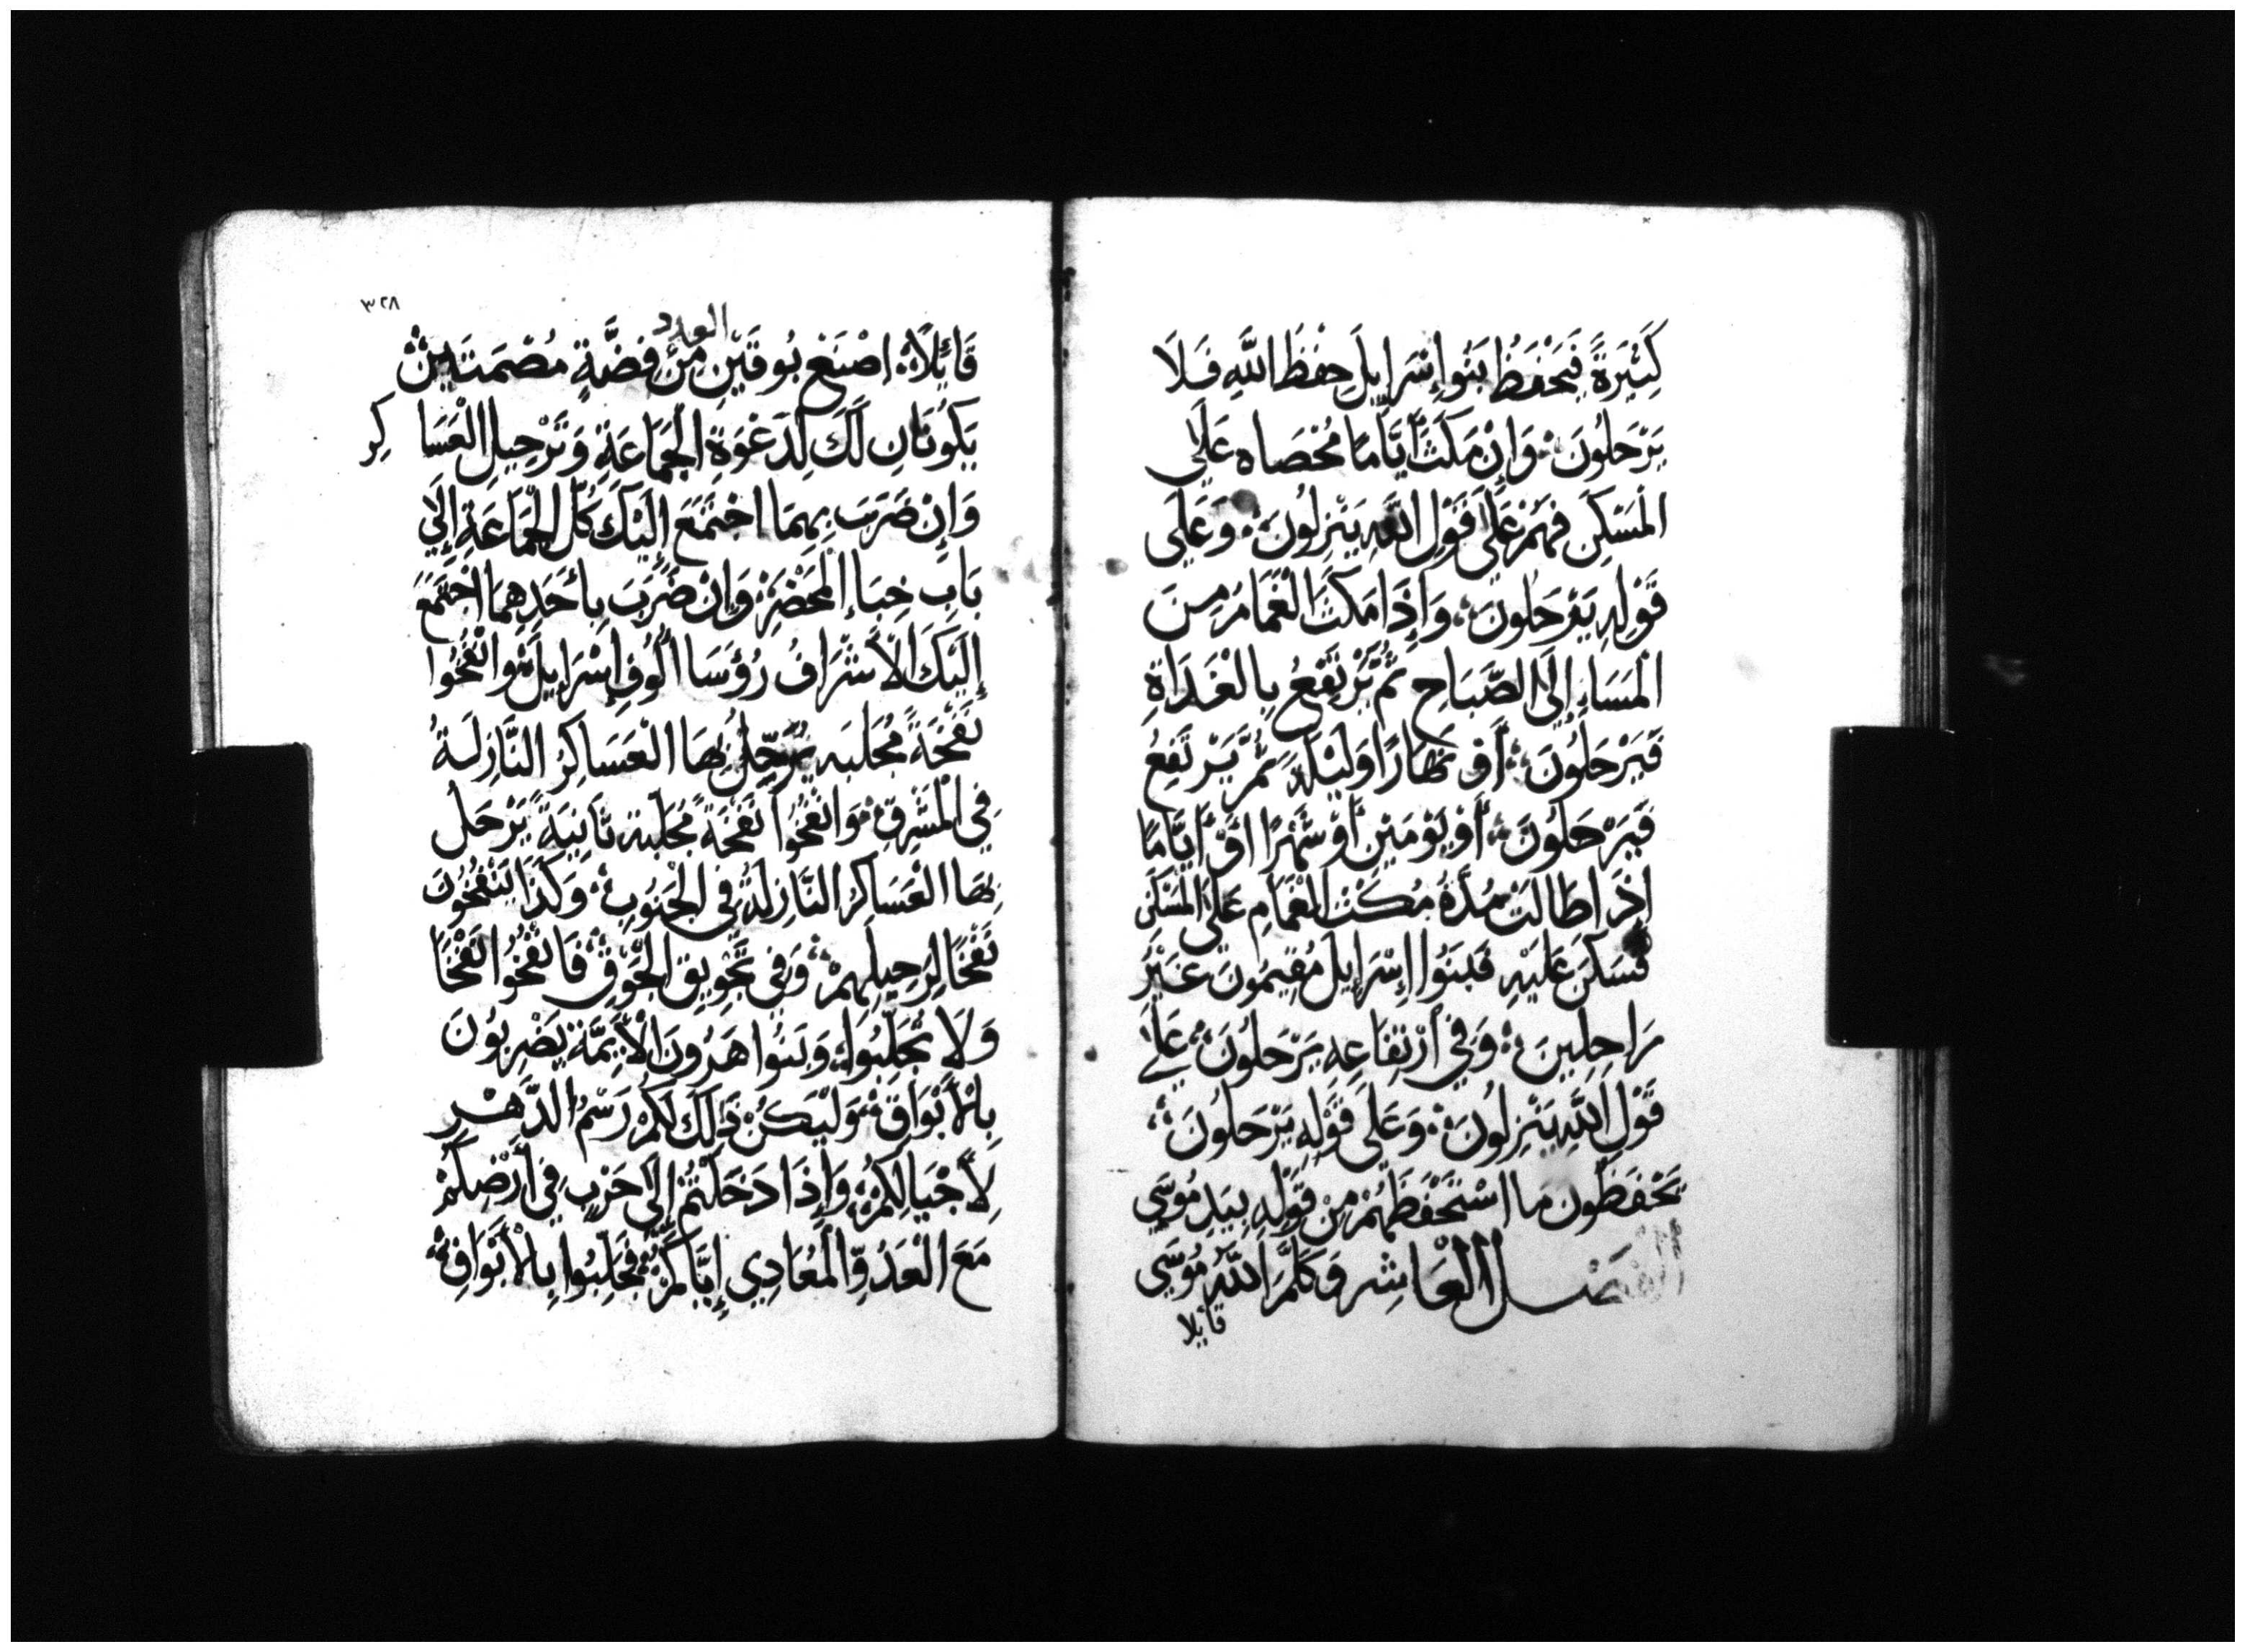 كَثِيْرَةً فَيَحْفَظُ بَنُوا إِسْرَايِلَ حِفْظَ اللَّهِ فَلَا
يَرْحَلُونَ وَإِنْ مَكَثَ أَيَّامًا مُحْصَاه عَلَى
الْمَسْكِنِ فَهُمْ عَلَى قَوْلِ اللَّهِ يَنْزِلُونَ وَعَلَى
قَوْلِهِ يَرْحَلُونَ وَإِذَا مَكَثَ الْغَمَامُ مِنَ
الْمَسَاءِ إِلَى الصَّبَاحِ ثُمَّ يَرْتَفِعُ بِالْغَدَاةِ
فَيَرْحَلُونَ أَوْ نَهَارًا وَلَيْلَةً ثُمَّ يَرْتَفِعُ
فَيَرْحَلُونَ أَوْ يَوْمَيْنِ أَوْ شَهْرًا أَوْ أَيَّامًا
إِذَا طَالَتْ مُدَّةُ مُكْثِ الْغَمَامِ عَلَى الْمَسْكَنِ
فَسَكَنَ عَلَيْهِ فَبَنُوا إِسْرَايِلَ مُقِيمُونَ غَيْرُ
رَاحِلِينَ وَفِي أَرْتِفَاعِهِ يَرْحَلُونَ عَلَى
قَوْلِ اللَّهِ يَنْزِلُونَ وَعَلَى قَوْلِهِ يَرْحَلُونَ
يَحْفَظُونَ مَا اسْتَحْفَظَهُمْ مِنْ قَوْلِهِ بِيَدِ مُوسَى
الفصل الْعَاشِر وَكَلَّمَ اللَّهُ مُوسَى
قايلا
٣٢٨
العدد
قَايِلًا اصْنَعْ بُوقَيْنِ مِنْ فِضَّةٍ مُصْمَتَيْنِ
يَكُونَانِ لَكَ لِدَعْوَةِ الْجَمَاعَةِ وَتَرْحِيلِ الْعَسَاكِرِ
وَإِنْ ضَرَبَ بِهِمَا اجْتَمَعَ إِلَيْكَ كُلُّ الْجَمَاعَةِ إِلَى
بَابِ خِبَاءِ الْمَحْضَرِ وَإِنْ ضَرَبَ بِأَحَدِهِمَا اجْتَمَعَ
إِلَيْكَ الْأَشْرَافُ رُؤَسَا أُلُوفِ إِسْرَايِلَ وَانْفُخُوا
نَفْخَةً مُجَلِّبَه يُرَحِّلُ بِهَا الْعَسَاكِرُ النَّازِلَةُ
فِي الْمَشْرِقِ وَانْفُخُوا نَفْخَةً مُجَلِّبَة ثَانِيَةً يَرْحَلُ
بِهَا الْعَسَاكِرُ النَّازِلَةُ فِي الْجَنُوبِ وَكَذَا يَنْفُخُونَ
نَفْخًا لِرَحِيلِهِمْ وَفِي تَجْوِيقِ الْجَوْقِ فَانْفُخُوا نَفْخًا
وَلَا تُجَلِّبُوا وَبَنُوا هَرُونَ الْأَيِمَّة يَضْرِبُونَ
بِالْأَبْوَاقِ وَلْيَكُنْ ذَلِكَ لَكُمْ رَسْمُ الدَّهْرِ
لِأَجْيَالِكُمْ وَإِذَا دَخَلْتُمْ إِلَى حَرْبٍ فِي أَرْضِكُمْ
مَعَ الْعَدُوِّ الْمُعَادِي إِيَّاكُمْ فَجَلِّبُوا بِالْأَبْوَاقِ